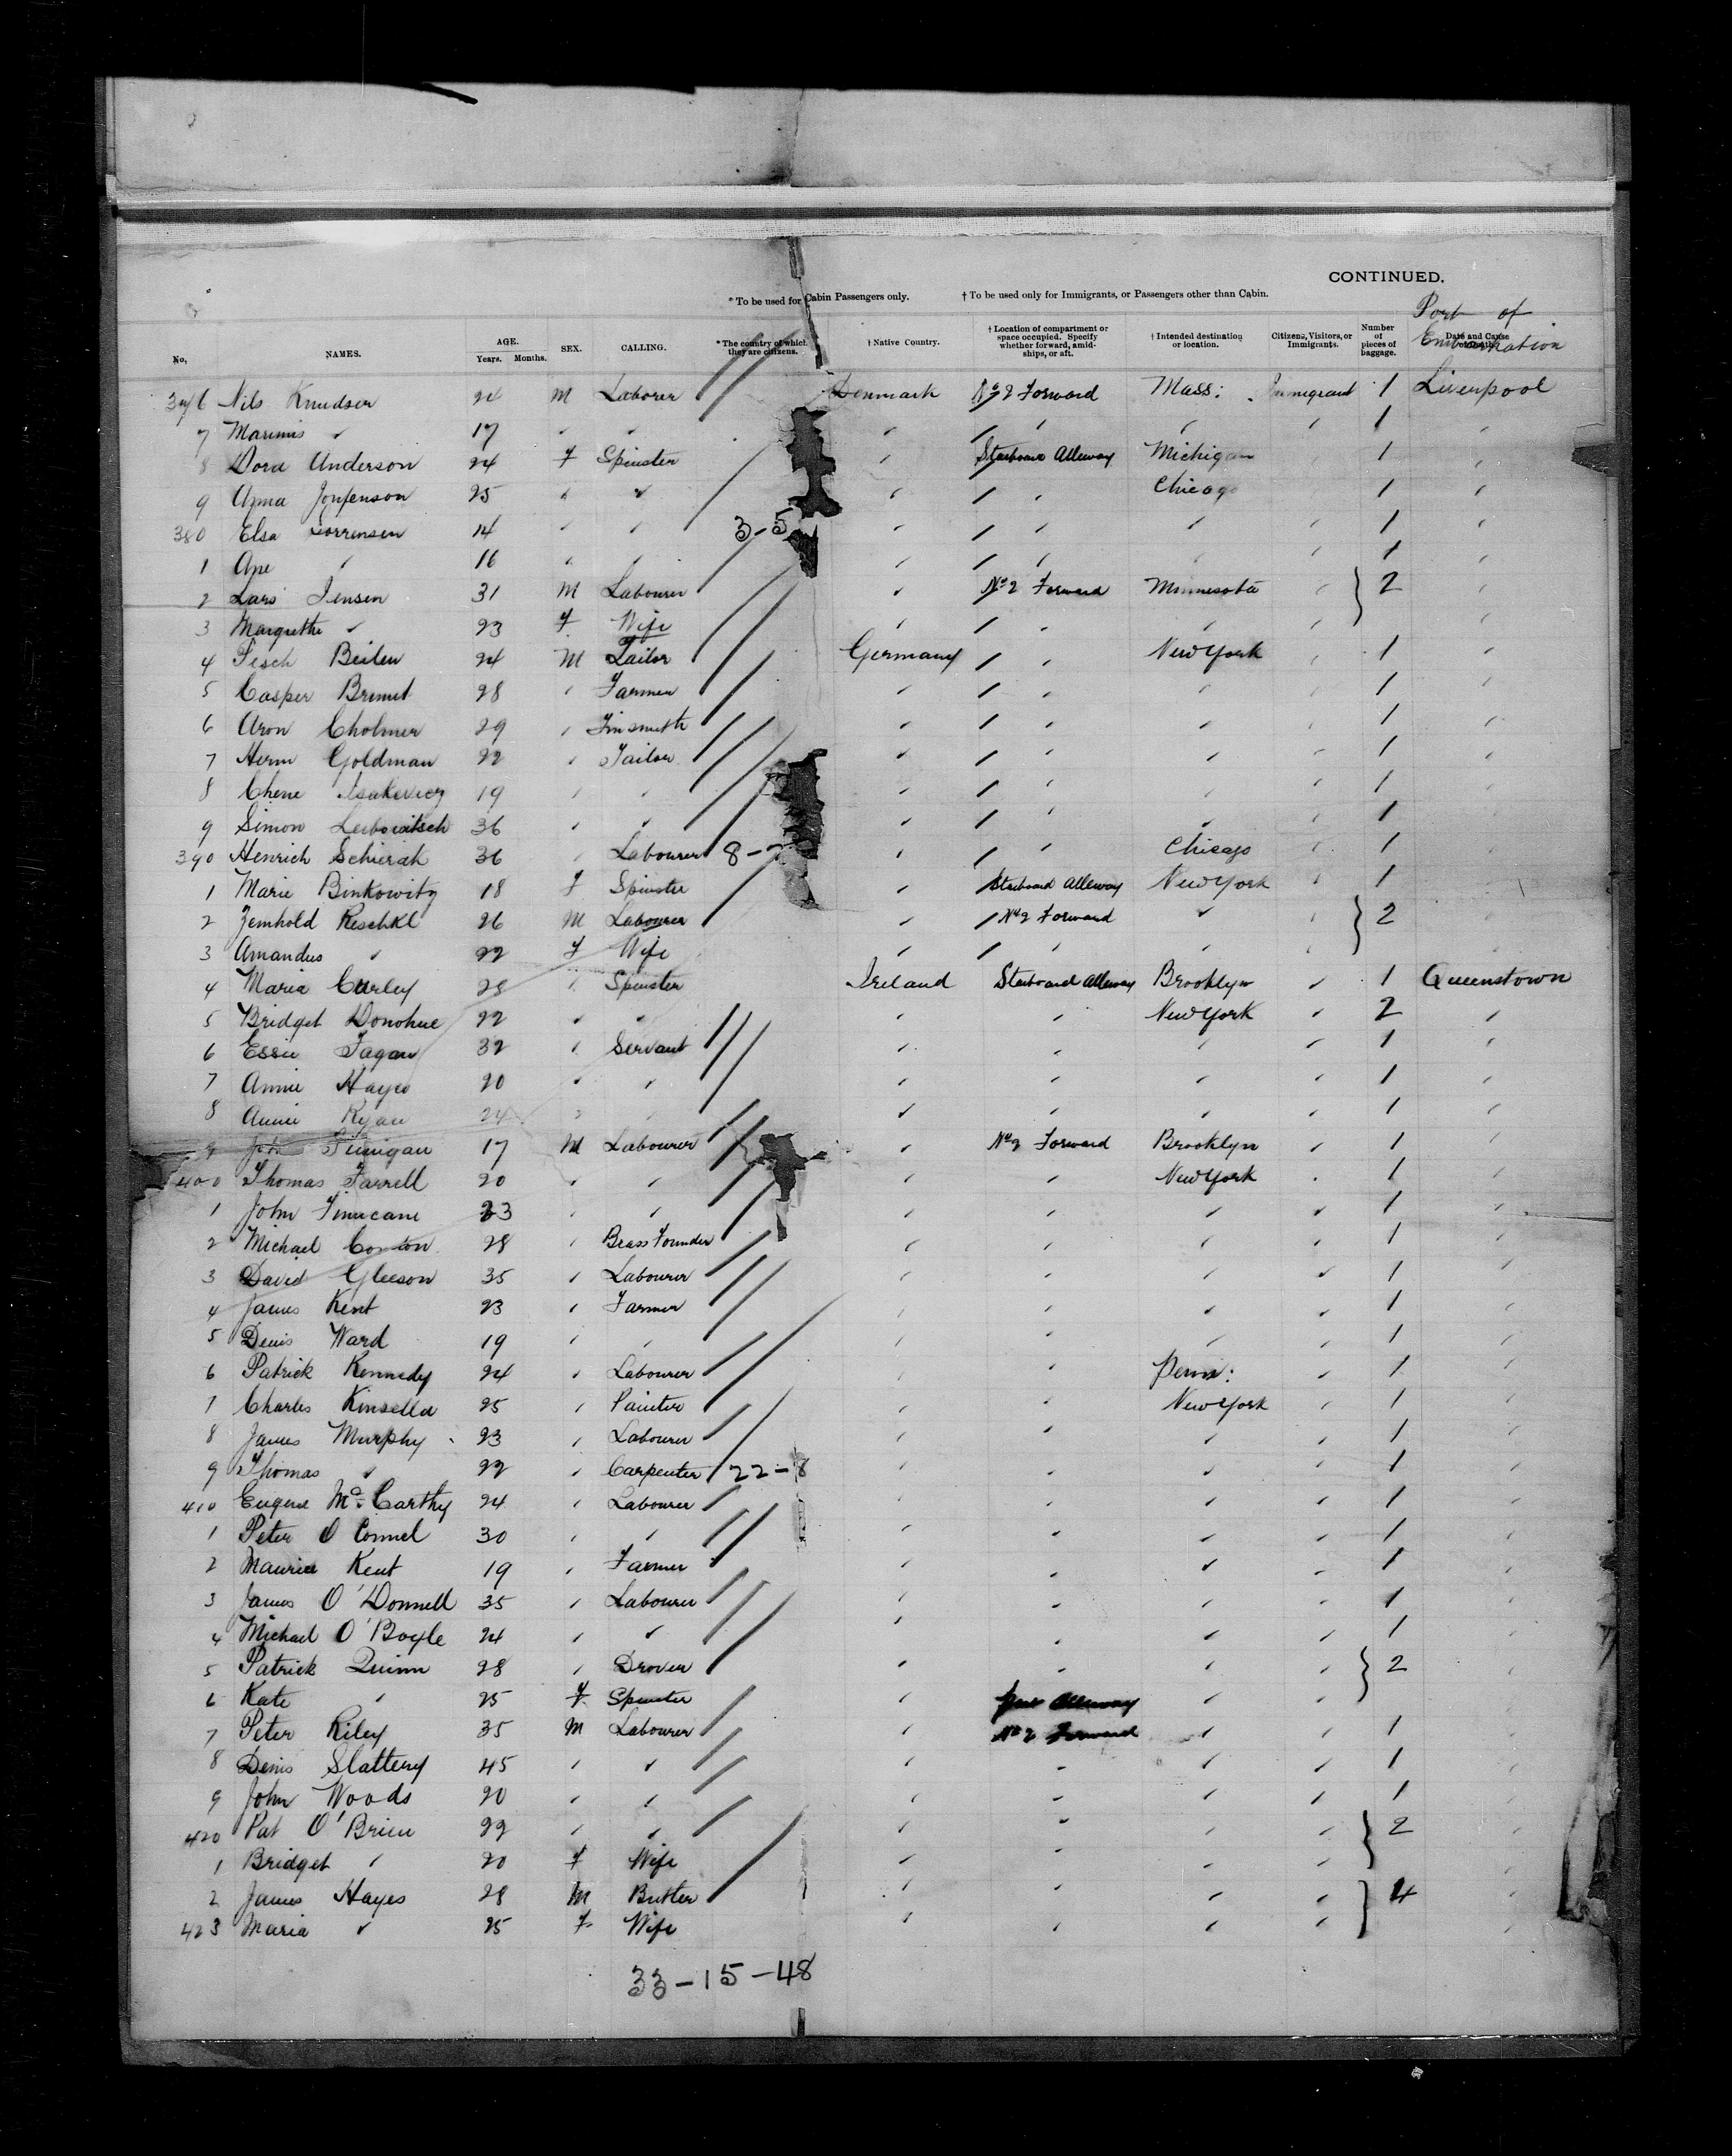 CONTINUED.
* To be used for Cabin Passengers only. † To be used only for Immigrants, or Passengers other than Cabin.
Port of Embarkation
No. NAMES. AGE. Years. Months. SEX. CALLING. * The country of which they are citizens. † Native Country. † Location of compartment or space occupied. Specify whether forward, amidships, or aft. † Intended destination or location. Citizens, Visitors, or Immigrants. Number of pieces of baggage. Date and Cause
Nils Knudsen 24 M Laborer Denmark No 2 Forward Mass: Immigrant 1 Liverpool
7 Marinus " 17 " " " " " " 1 "
8 Dora Anderson 24 F Spinster " Starboard Alleway Michigan 1 "
9 Anna 25 " " " " Chicago 1 "
380 Elsa Sorrensen 14 " " 3-5 " " " " 1 "
1 Ane " 16 " " " " " " 1 "
2 Lars Jensen 31 M Labourer " No 2 Forward Minnesota " 2 "
3 Margrethe " 23 F Wife " " " " "
4 Pesch Beilen 24 M Tailor Germany " New York " 1 "
5 Casper 28 " Farmer " " " " 1 "
6 Aron Cholmer 29 " Tinsmith " " " " 1 "
7 Herm Goldman 22 " Tailor " " " " 1 "
8 Chene 19 " " " " " " 1 "
9 Simon Leibowitsch 36 " " " " " " 1 "
390 Henrich Schierak 36 " Labourer 8- " " Chicago " 1 "
1 Marie Binkowitz 18 F Spinster " Starboard Alleway New York " 1 "
2 Reschkl 26 M Labourer " No 2 Forward " " 2 "
3 Amandus " 22 F Wife " " " " "
4 Maria Curley 28 " Spinster Ireland Starboard Alleway Brooklyn " 1 Queenstown
5 Bridget Donohue 22 " " " " New York " 2 "
6 Essie Fagan 32 " Servant " " " " 1 "
7 Annie Hayes 20 " " " " " " 1 "
8 Annie Ryan 24 " " " " " " 1 "
9 John Finnigan 17 M Labourer " No 2 Forward Brooklyn " 1 "
400 Thomas Farrell 20 " " " " New York " 1 "
1 John Finucane 23 " " " " " " 1 "
2 Michael 28 " Brass Founder " " " " 1 "
3 David Gleeson 35 " Labourer " " " " 1 "
4 James Kent 23 " Farmer " " " " 1 "
5 Denis Ward 19 " " " " " " 1 "
6 Patrick Kennedy 24 " Labourer " " Penn: " 1 "
7 Charles Kinsella 25 " Painter " " New York " 1 "
8 James Murphy 23 " Labourer " " " " 1 "
9 Thomas " 22 " Carpenter 22-8 " " " " 1 "
410 Eugene McCarthy 24 " Labourer " " " " 1 "
1 Peter O Connel 30 " " " " " " 1 "
2 Maurice Kent 19 " Farmer " " " " 1 "
3 James O'Donnell 35 " Labourer " " " " 1 "
4 Michael O'Boyle 24 " " " " " " 1 "
5 Patrick Quinn 28 " Drover " " " " 2 "
6 Kate " 25 F Spinster " Alleway " " "
7 Peter Riley 35 M Labourer " No 2 Forward " " 1 "
8 Denis Slattery 45 " " " " " " 1 "
9 John Woods 20 " " " " " " 1 "
420 Pat O'Brien 22 " " " " " " 2 "
1 Bridget " 20 F Wife " " " " "
2 James Hayes 28 M Butler " " " " 4 "
423 Maria " 25 F Wife " " " " "
33-15-48